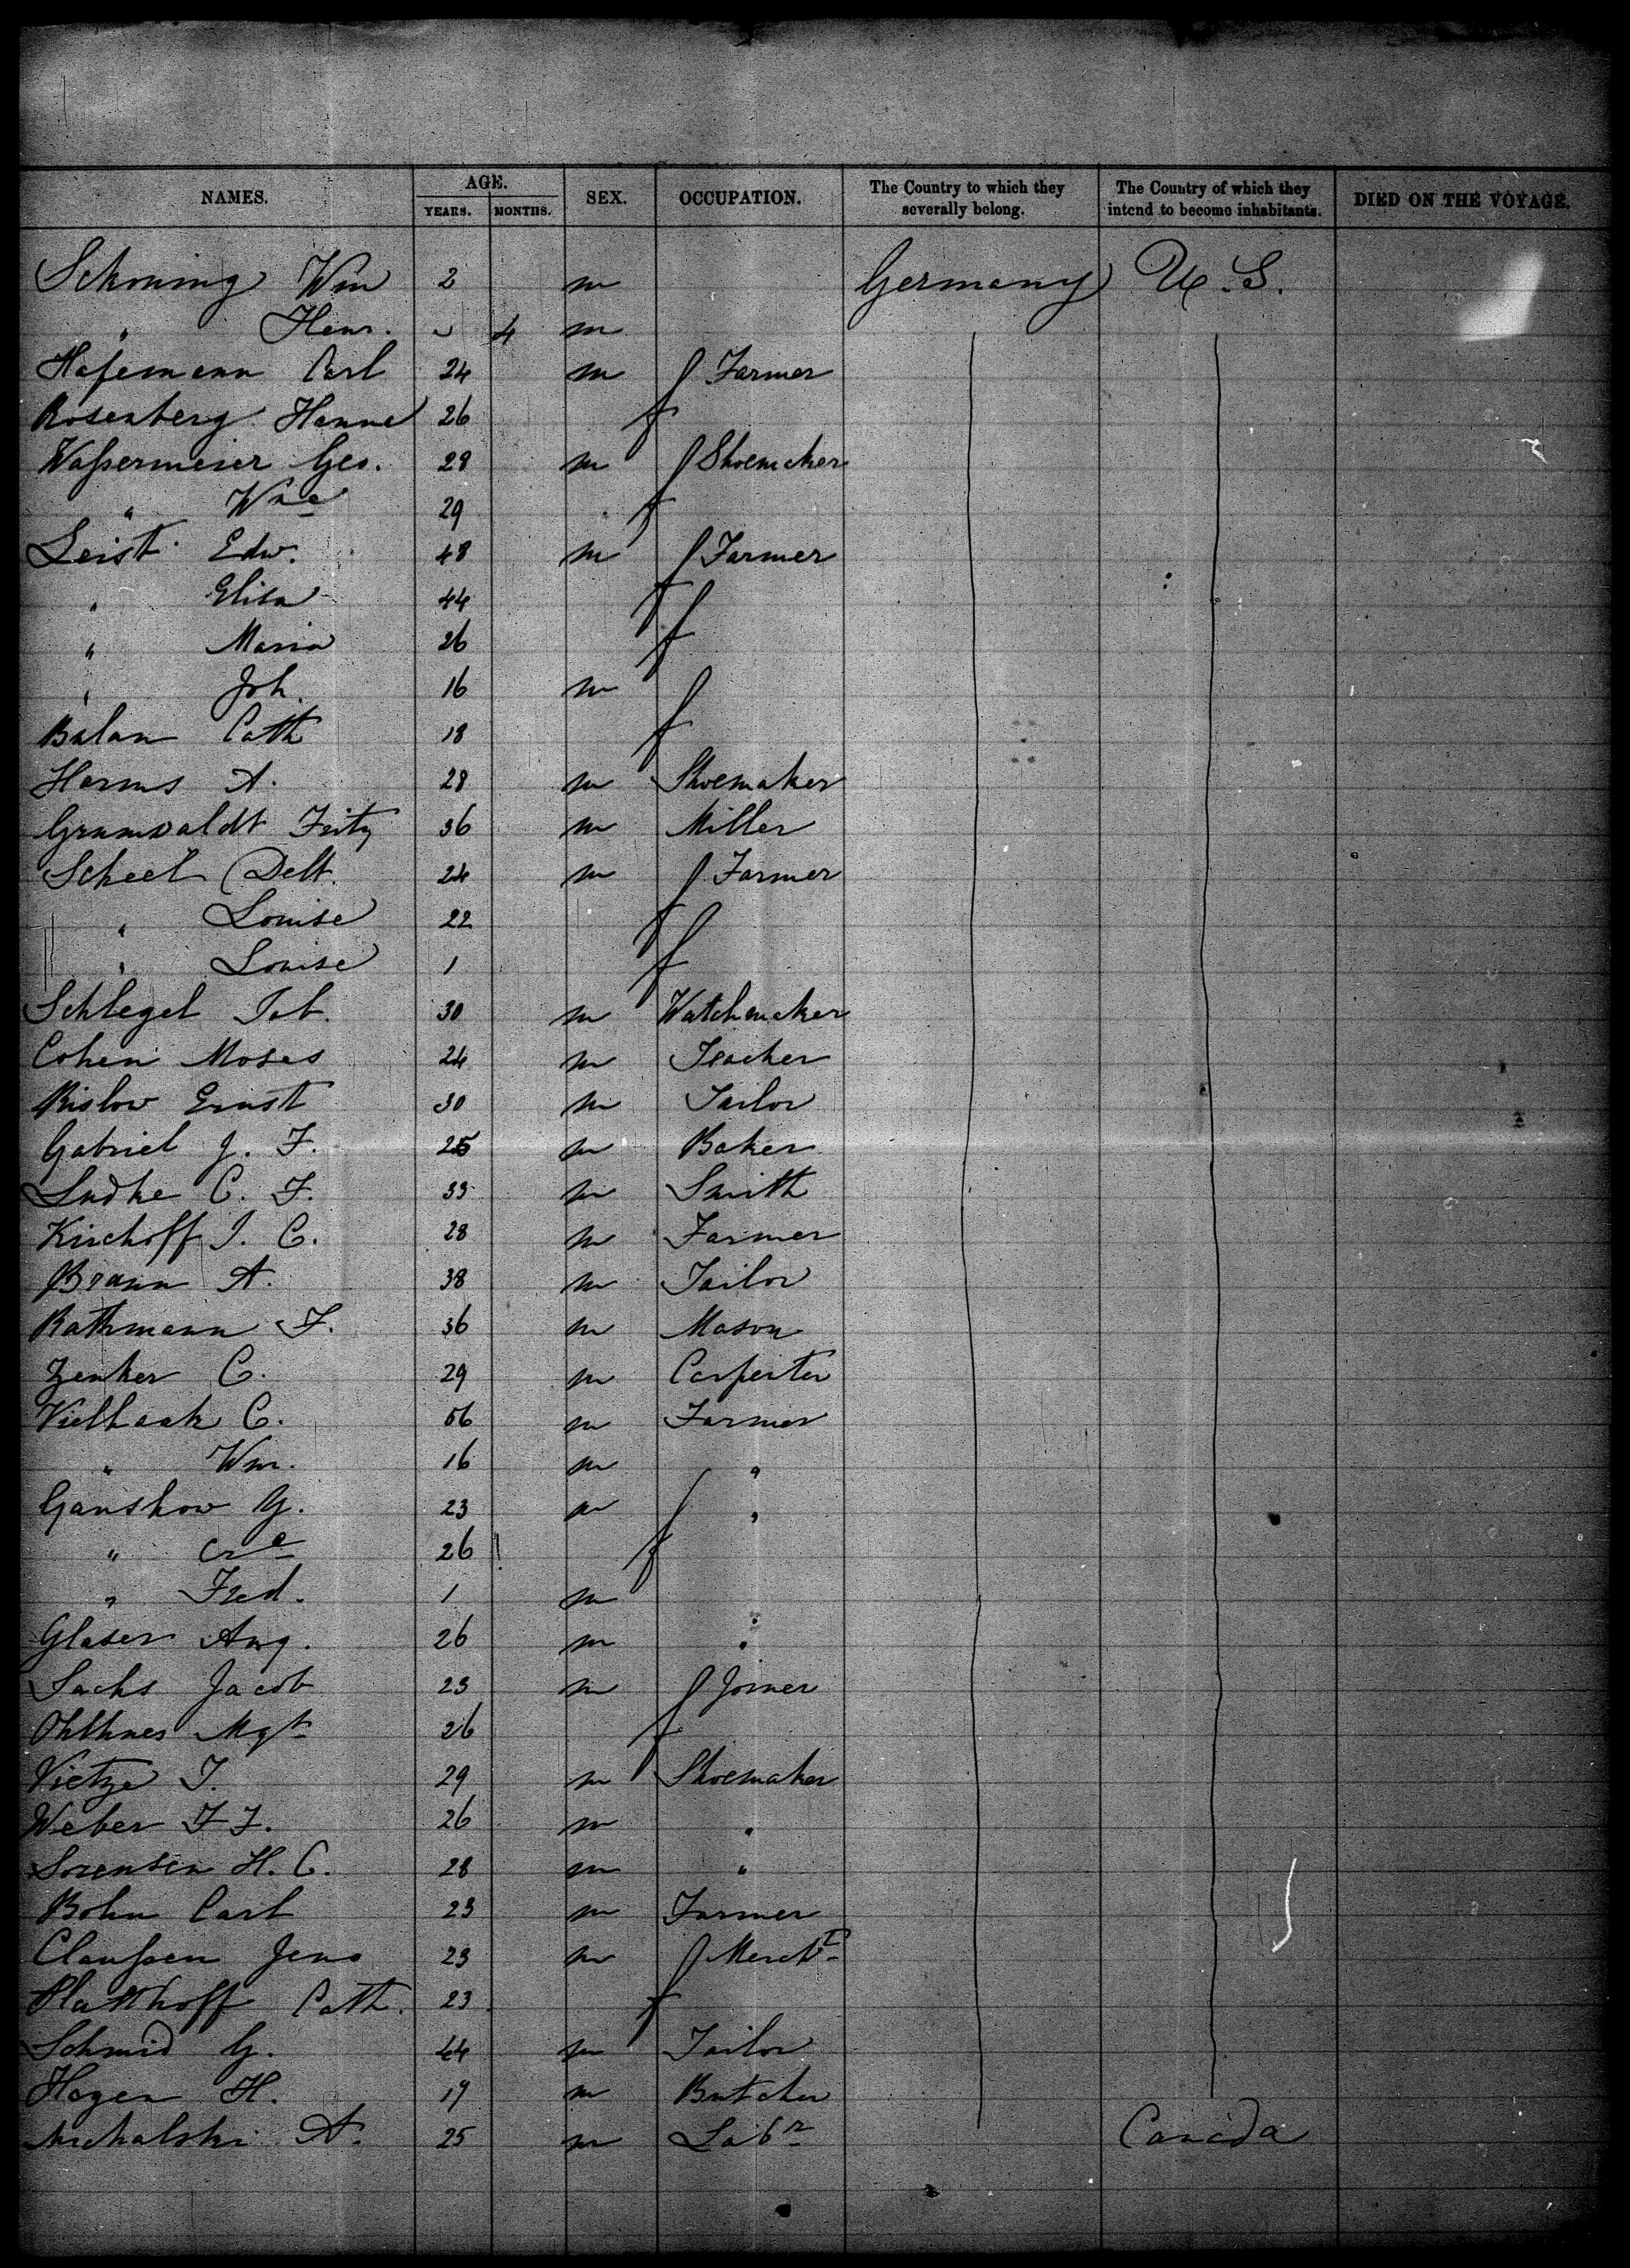 NAMES. AGE. SEX. OCCUPATION. The Country to which they severally belong. The Country of which they intend to become inhabitants. DIED ON THE VOYAGE.
YEARS. MONTHS.
Schoning Wm 2 m Germany U.S.
" Henr. 4 m
Hafemann Carl 24 m Farmer
Rosenberg Hanne 26 f
Waßermeier Geo. 28 m Shoemaker
" Wme 29 f
Leist Edw. 48 m Farmer
" Elisa 44 f
" Maria 26 f
" Joh. 16 m
Balan Cath 18 f
Harms A. 28 m Shoemaker
Grunwaldt Fritz 36 m Miller
Scheel Delt. 24 m Farmer
" Louise 22 f
" Louise 1 f
Schlegel Tob. 30 m Watchmaker
Cohen Moses 24 m Teacher
Rislow Ernst 30 m Tailor
Gabriel J. F. 25 m Baker
Ludke C. F. 33 m Smith
Kirchoff J. C. 28 m Farmer
Braun A. 38 m Tailor
Rathmann F. 36 m Mason
Zenker C. 29 m Carpenter
Vielhaak C. 56 m Farmer
" Wm. 16 m "
Ganskow G. 23 m "
" Cre 26 f
" Fred. 1 m
Glaser Aug. 26 m "
Sachs Jacob 23 m Joiner
Mgt 26 f
Vietze J. 29 m Shoemaker
Weber F. J. 26 m "
Sorensen H. C. 28 m "
Bohn Carl 23 m Farmer
Claußen Jens 23 m Mercht
Platthoff Cath. 23 f
Schmid G. 44 m Tailor
Hagen H. 19 m Butcher
Michalski A. 25 m Labr Canada